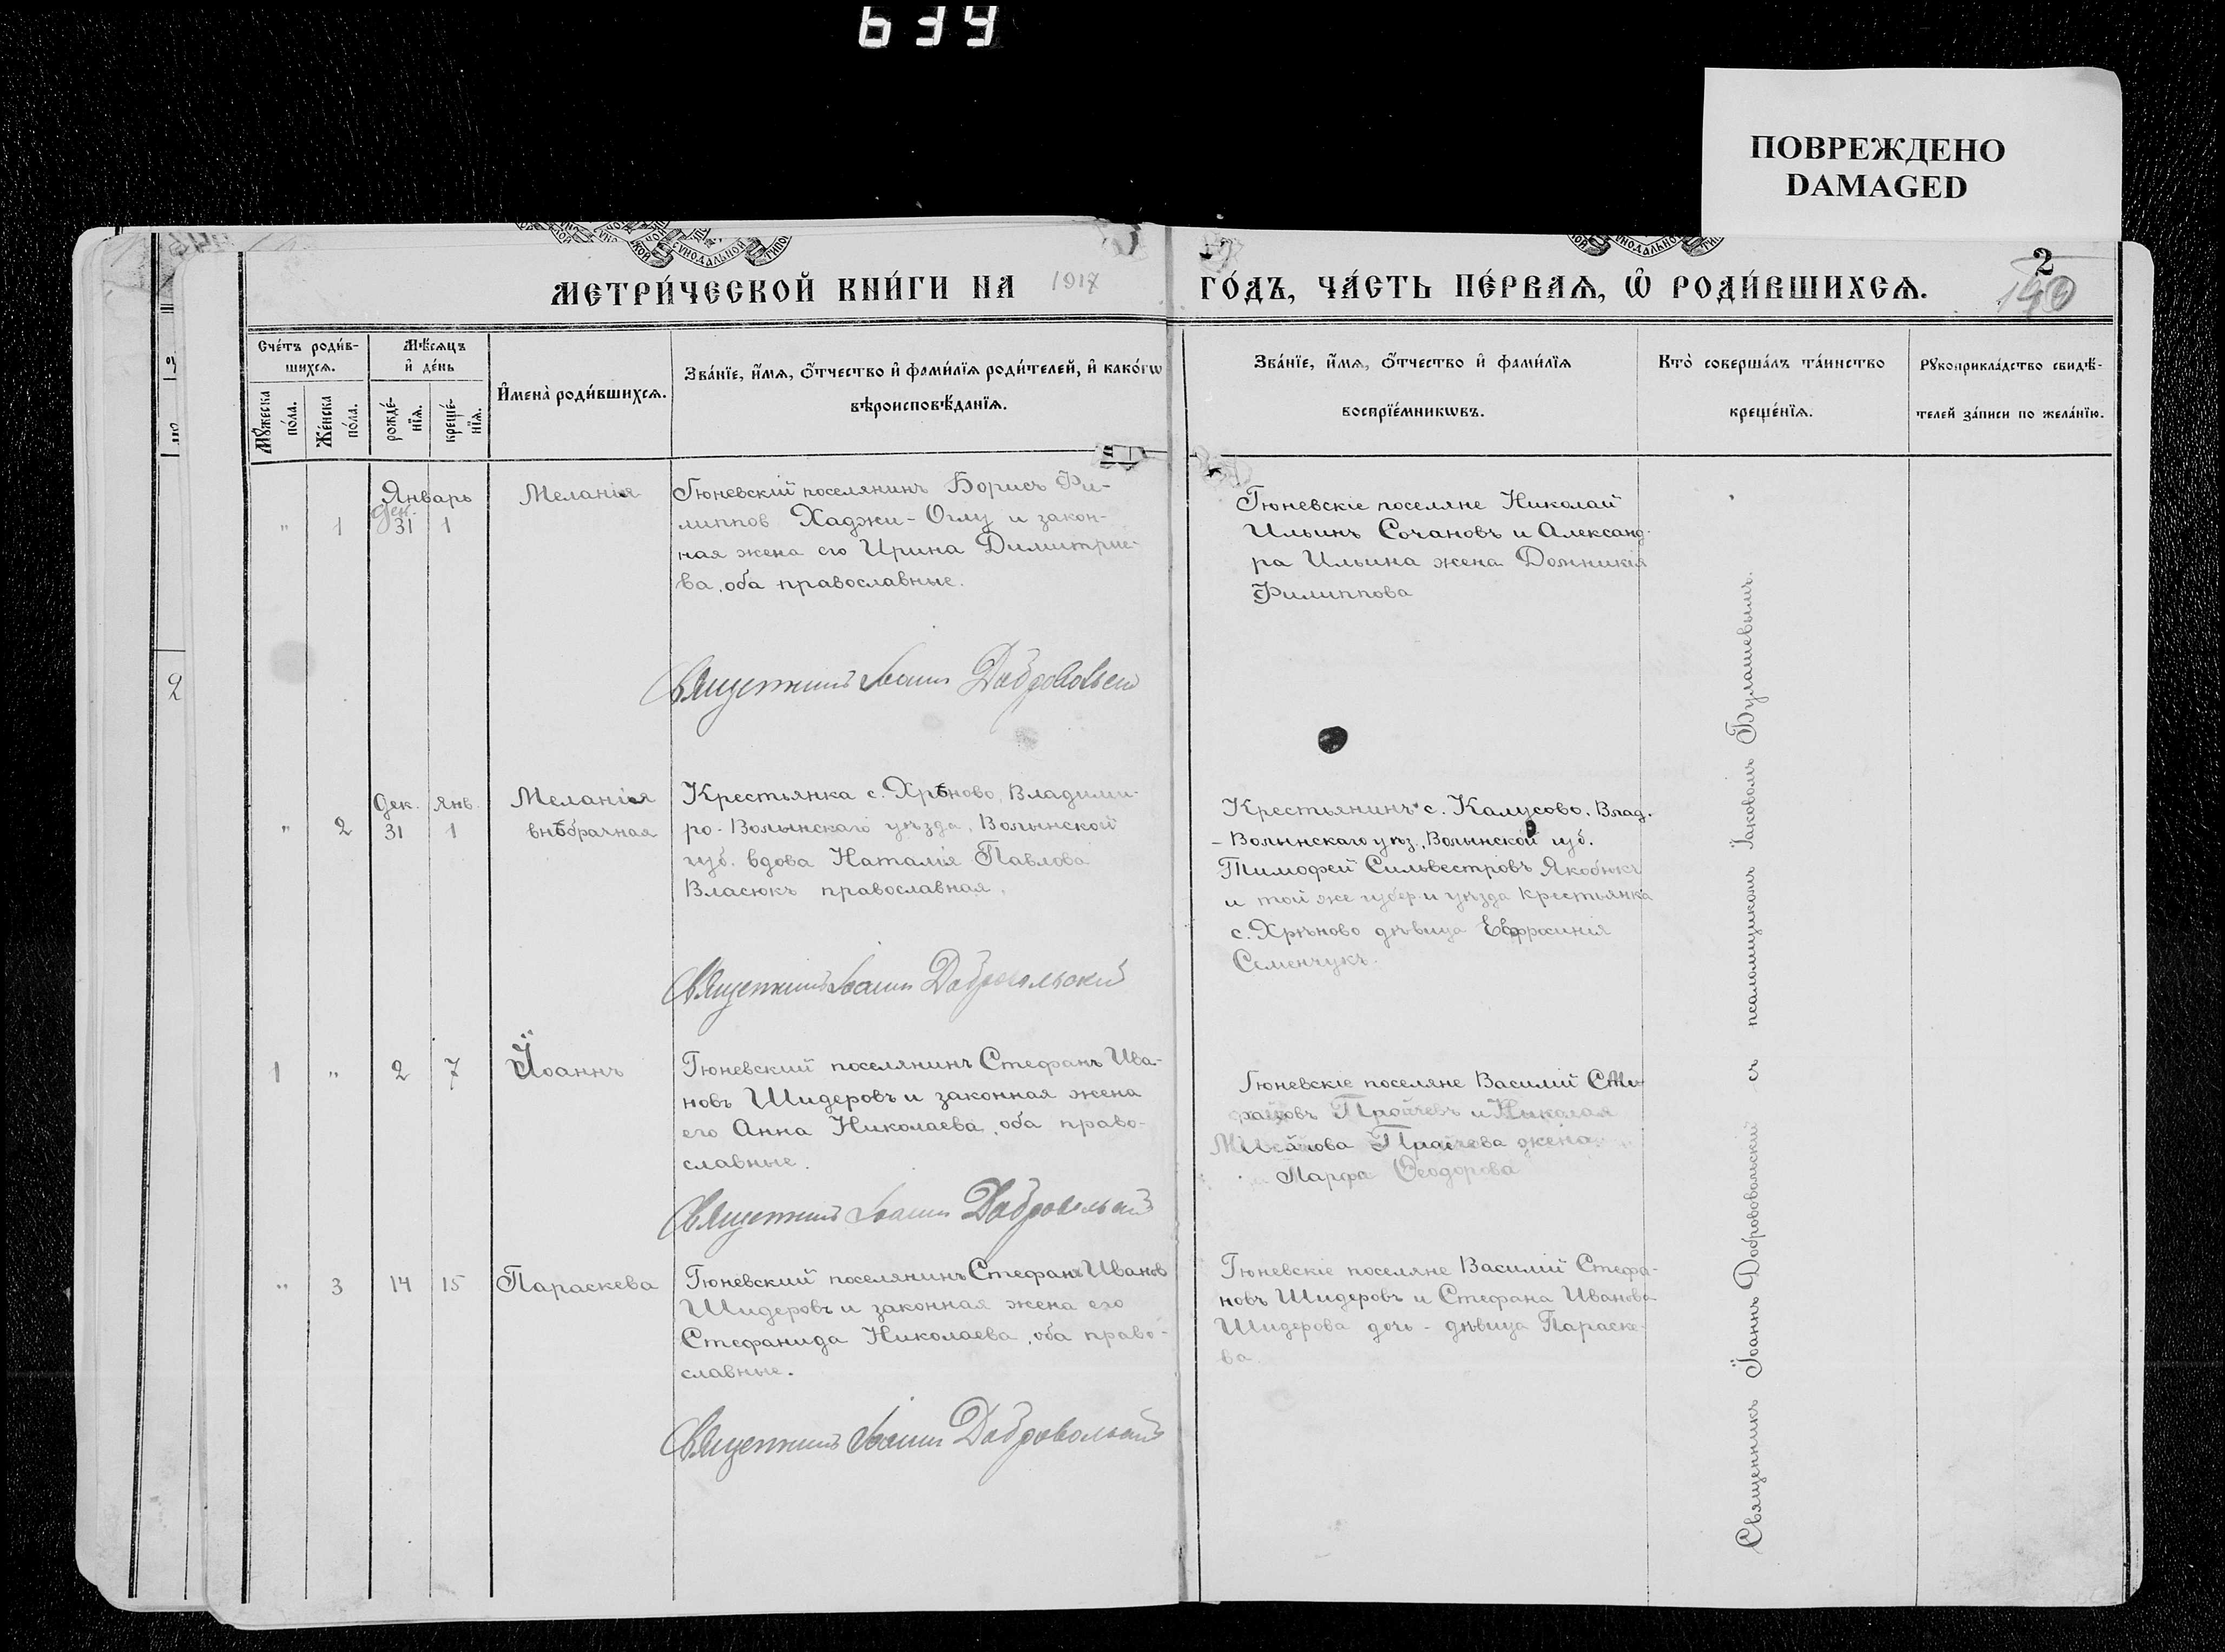 639
ПОВРЕЖДЕНО
DAMAGED
МЕТРИ́ЧЕСКОЙ КНИ́ГИ НА 1917 ГО́ДЪ, ЧА́СТЬ ПЕ́РВАѦ, Ѽ РОДИ́ВШИХСѦ.
2
Сче́тъ роди́в-
шихсѧ.
Мꙋ́жеска
по́ла.
Же́нска
по́ла.
Мѣ́сѧцъ
и҆ де́нь
рожде́-
нїѧ.
креще́-
нїѧ.
И҆мена̀ роди́вшихсѧ.
Зва́нїе, и҆́мѧ, ѻ҆́тчество и҆ фами́лїѧ роди́телей, и҆ како́гѡ
вѣроисповѣ́данїѧ.
Зва́нїе, и҆́мѧ, ѻ҆́тчество и҆ фами́лїѧ
воспрїе́мникѡвъ.
Кто̀ соверша́лъ та́инство
креще́нїѧ.
Рꙋкоприкла́дство свидѣ́-
телей за́писи по жела́нїю.
Январь
Дек.
" 1 31 1
Меланія
Гюневскій поселянинъ Борисъ Фи-
липпов Хаджи-Оглу и закон-
ная жена его Ирина Димитрие-
ва, оба православные.
Священникъ Іоаннъ Добровольскій
Гюневскіе поселяне Николай
Ильинъ Сочановъ и Александ-
ра Ильина жена Домникія
Филиппова
Дек. Янв.
" 2 31 1
Меланія
внѣбрачная
Крестьянка с. Хрѣново, Владими-
ро-Волынскаго уѣзда, Волынской
губ. вдова Наталія Павлова
Власюкъ православная.
Священникъ Іоаннъ Добровольскій
Крестьянинъ с. Калусово, Влад.
-Волынскаго уѣз., Волынской губ.
Тимофей Сильвестровъ Якобюкъ
и той же губер. и уѣзда крестьянка
с. Хрѣново дѣвица Евфросинія
Семенчукъ.
1 " 2 7
Іоаннъ
Гюневский поселянинъ Стефанъ Ива-
новъ Шидеровъ и законная жена
его Анна Николаева, оба право-
славные.
Священникъ Іоаннъ Добровольскій
Гюневскіе поселяне Василій Сте-
фановъ и Николая
жена
Марфа Ѳеодорова
" 3 14 15
Параскева
Гюневский поселянинъ Стефанъ Иванов
Шидеровъ и законная жена его
Стефанида Николаева, оба право-
славные.
Священникъ Іоаннъ Добровольскій
Гюневскіе поселяне Василій Стефа-
новъ Шидеровъ и Стефана Иванова
Шидерова дочь - дѣвица Параске-
ва.
Священникъ Іоаннъ Доброво­вольскій съ псаломщикомъ Іаковомъ Булашевымъ.
2